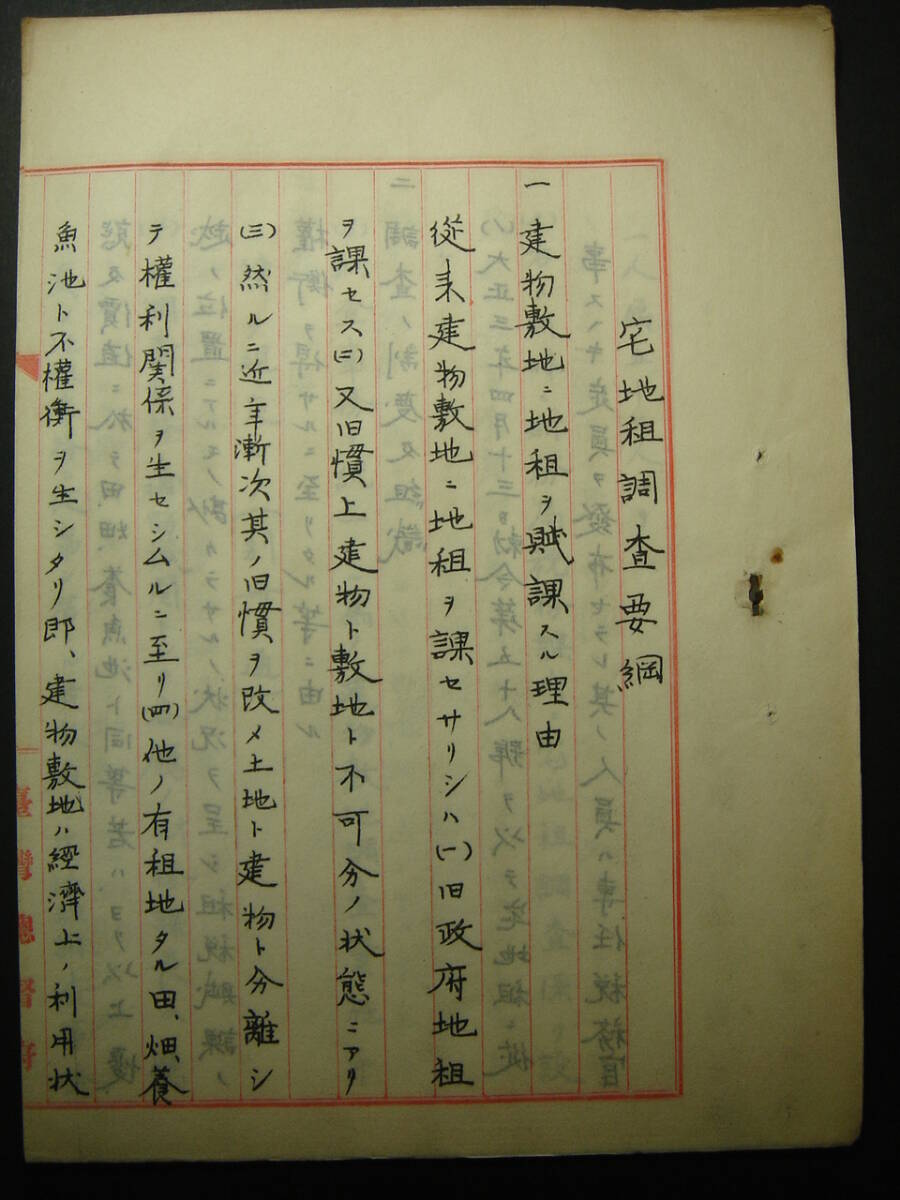 宅地租調査要綱
一 建物敷地ニ地租ヲ賦課スル理由
從来建物敷地ニ地租ヲ課セサリシハ(一)旧政府地租
ヲ課セス(二)又旧慣上建物ト敷地ト不可分ノ状態ニアリ
(三)然ルニ近年漸次其ノ旧慣ヲ改メ土地ト建物ト分離シ
テ權利関係ヲ生セシムルニ至リ(四)他ノ有租地タル田、畑、養
魚池ト不權衡ヲ生シタリ即、建物敷地ハ經濟上ノ利用状
臺灣總督府